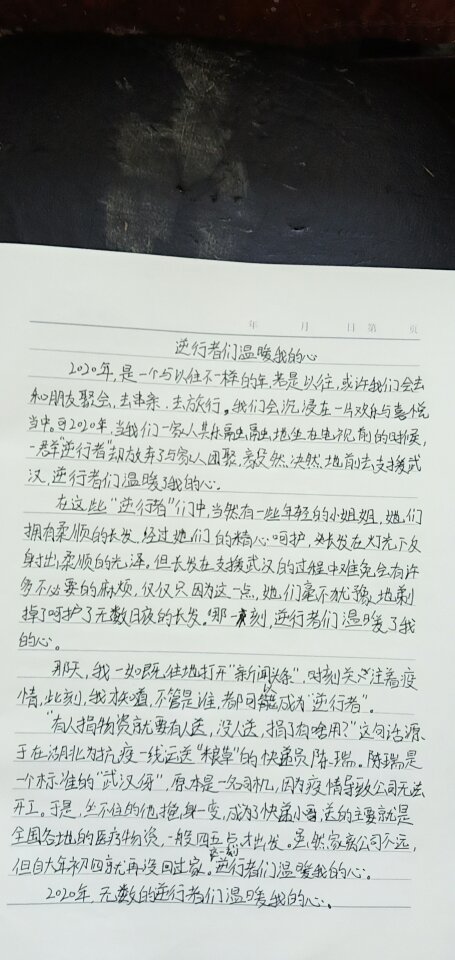 年 月 日 第 页
逆行者们温暖我的心
2020年,是一个与以往不一样的年,若是以往,或许我们会去
和朋友聚会,去串亲,去旅行。我们会沉浸在一片欢乐与喜悦
当中。可2020年,当我们一家人其乐融融地坐在电视前的时候,
一群"逆行者"却放弃了与家人团聚,毅然决然地前去支援武
汉,逆行者们温暖了我的心。
在这些"逆行者"们中,当然有一些年轻的小姐姐,她们
拥有柔顺的长发,经过她们的精心呵护,长发在灯光下反
射出柔顺的光泽。但长发在支援武汉的过程中难免会有许
多不必要的麻烦,仅仅只因为这一点,她们毫不犹豫地剃
掉了呵护了无数日夜的长发。那一刻,逆行者们温暖了我
的心。
那天,我一如既往地打开"新闻头条",时刻关注着疫
情,此刻,我才知道,不管是谁,都可以成为"逆行者"。
"有人捐物资就要有人送,没人送,捐了有啥用?"这句话源
于在湖北为抗疫一线运送"粮草"的快递员陈瑞。陈瑞是
一个标准的"武汉伢",原本是一名司机,因为疫情导致公司无法
开工。于是,坐不住的他摇身一变,成为了快递小哥,送的主要就是
全国各地的医疗物资,一般四五点才出发。虽然家离公司不远,
但自大年初四就再没回过家。这一刻,逆行者们温暖我的心。
2020年,无数的逆行者们温暖我的心。